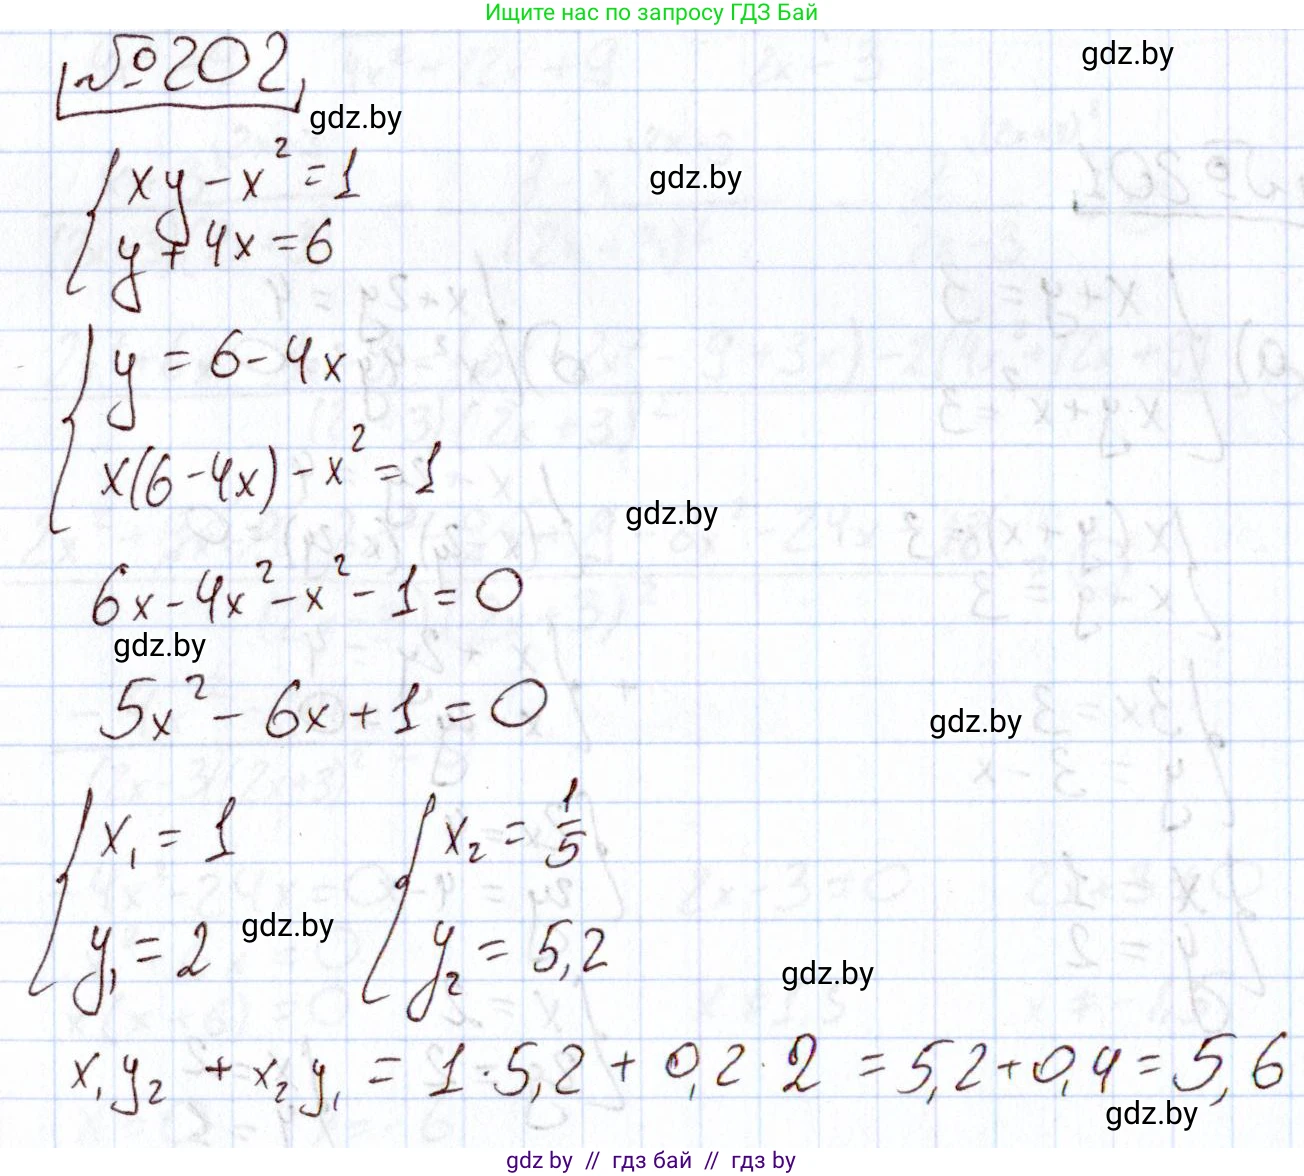 Ищите нас по запросу ГДЗ Бай
№202
gdz.by
gdz.by
xy - x² = 1
gdz.by
y + 4x = 6
y = 6 - 4x
x(6 - 4x) - x² = 1
gdz.by
6x - 4x² - x² - 1 = 0
gdz.by
5x² - 6x + 1 = 0
gdz.by
x₁ = 1 x₂ = 1/5
y₁ = 2 y₂ = 5,2
gdz.by
gdz.by
x₁y₂ + x₂y₁ = 1 · 5,2 + 0,2 · 2 = 5,2 + 0,4 = 5,6
gdz.by
gdz by // гдз бай // гдз by